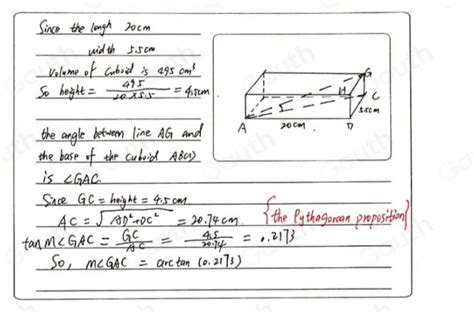 Since the length 20cm
width 5.5cm
Volume of cuboid is 495 cm³
So height = 495 / 20×5.5 = 4.5cm
G
H
C
5.5cm
A
20cm
D
the angle between line AG and
the base of the cuboid ABCD
is ∠GAC.
Since GC = height = 4.5cm
AC = √AD²+DC² = 20.74cm. {the Pythagorean proposition}
tan m∠GAC = GC / AC = 4.5 / 20.74 = 0.2173
So, m∠GAC = arctan (0.2173)